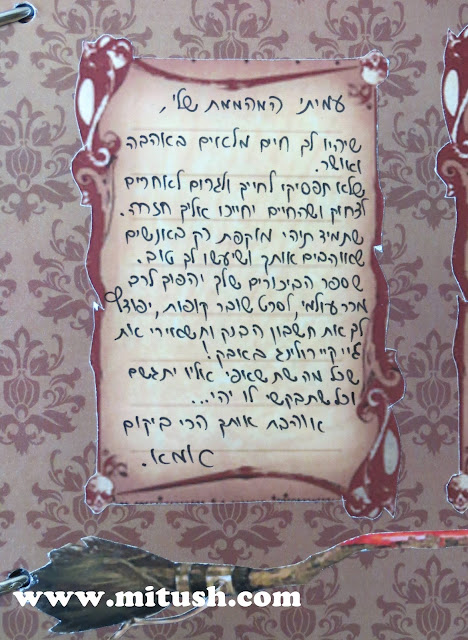 עמיתי המהממת שלי,
שיהיו לך חיים מלאים באהבה
ואושר.
שלא תפסיקי לחייך ולגרום לאחרים
לצחוק ושהחיים יחייכו אליך חזרה.
שתמיד תהיי מוקפת רק באנשים
שאוהבים אותך ושיעשו לך טוב.
שספר הביכורים שלך יהפוך לרב
מכר עולמי, לסרט שובר קופות, יפוצץ
לך את חשבון הבנק ותשאירי את
ג'יי קיי רולינג באבק!
שכל מה שאת יתגשם
וכל שתבקשי לו יהי...
אוהבת אותך הכי ביקום
www.mitush.com